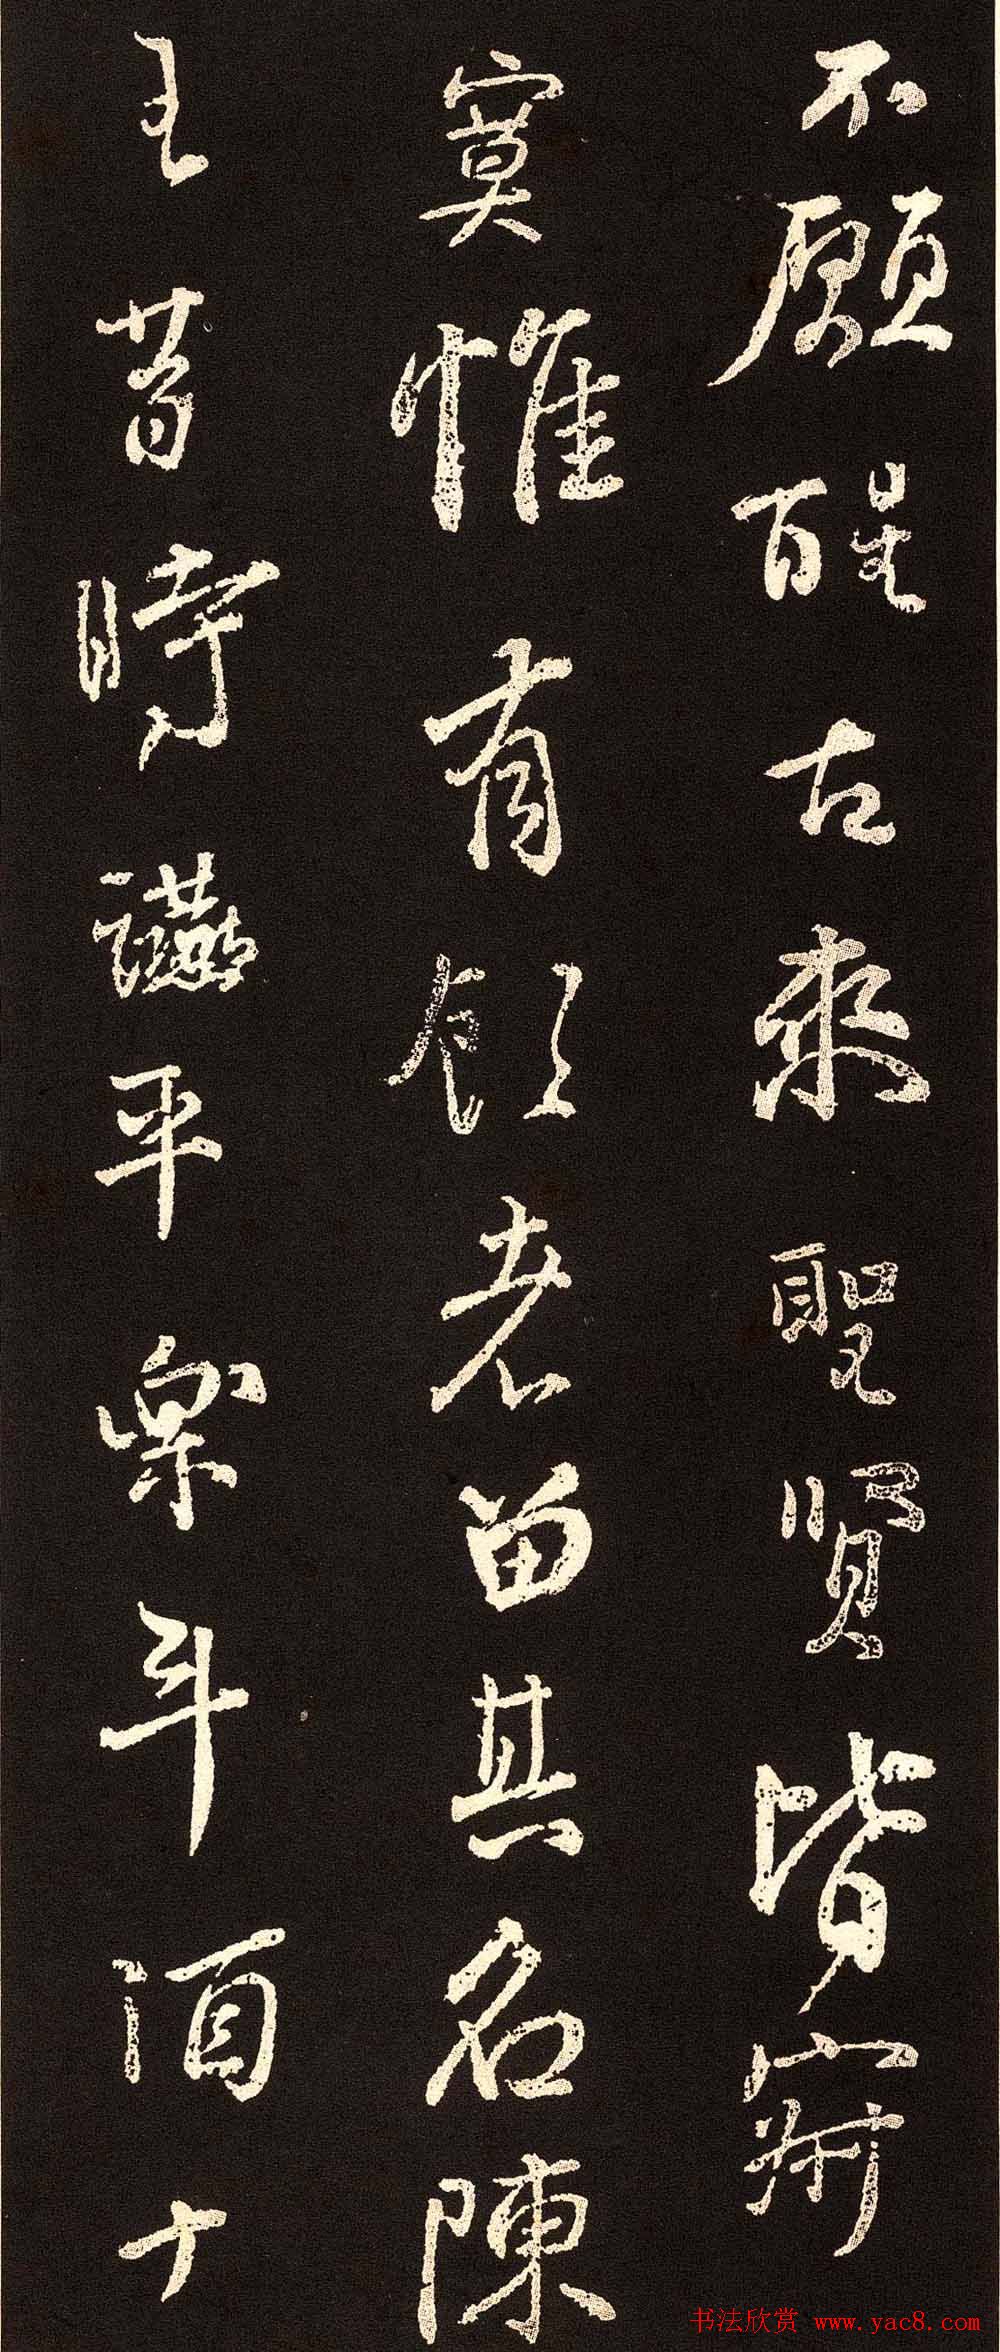 不願醒古來聖賢皆寂
寞惟有飲者留其名陳
王昔時讌平樂斗酒十
书法欣赏 www.yac8.com